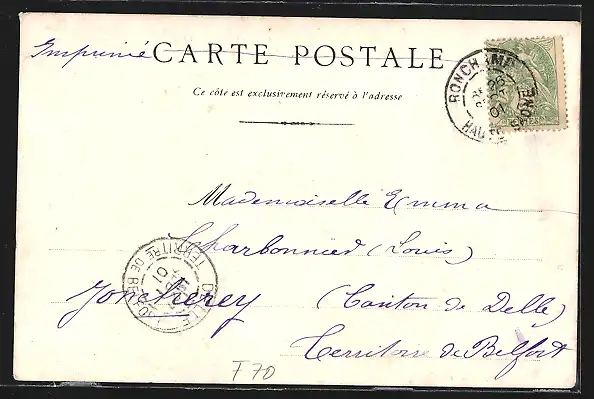 Imprimé CARTE POSTALE
Ce côté est exclusivement réservé à l'adresse
RONCHAMP
HAUTE SAONE
Mademoiselle Emma
Charbonnied (Louis)
DELLE
TERRITRE DE BELFORT
01
Joncherey (Canton de Delle)
Territoire de Belfort
T 70